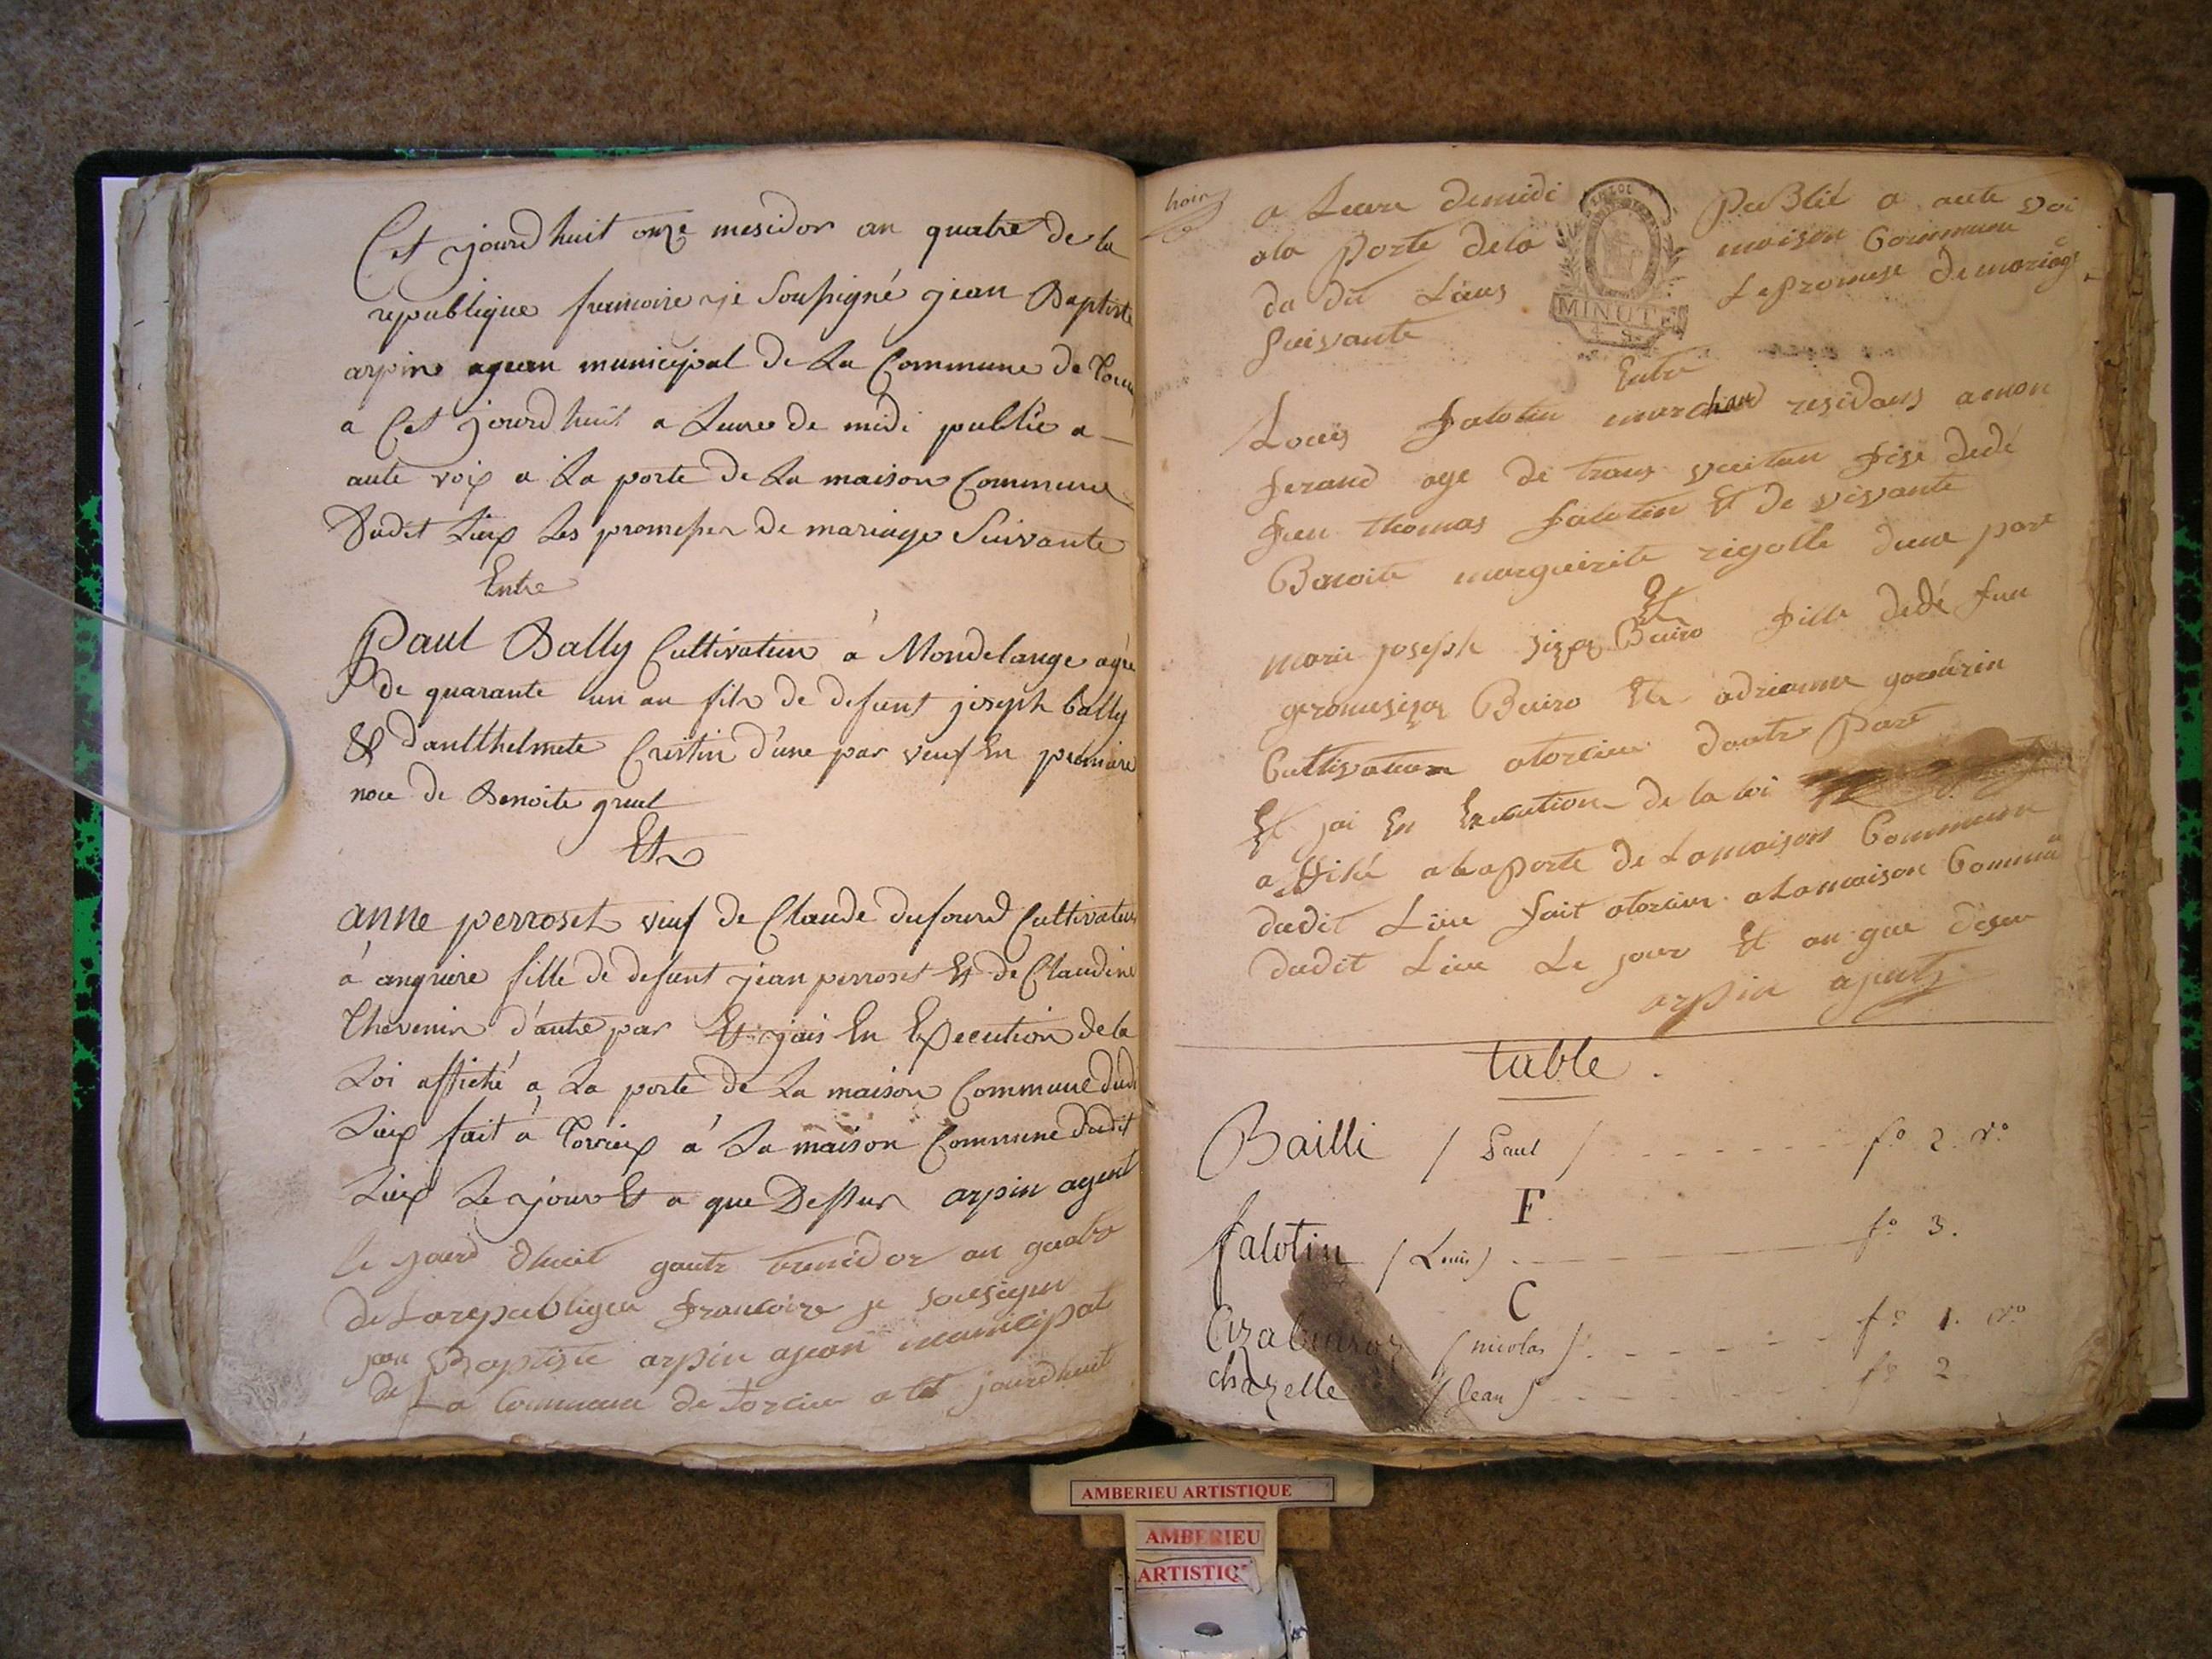 Cet jourdhuit onze mesidor an quatre de la
republique francoire je Soussigné jean Baptiste
arpin agean municipal de La Commune de
a Cet jourdhuit a Leure de midi publié a
aute voix a La porte de La maison Commune
dudit Lieux Les promesses de mariage Suivante
Entre
Paul Bally Cultivateur á Mondelange agée
de quarante un an fils de defunt joseph bally
& d'anthelmete Cristin d'une par veuf En premiere
noce de Benoite gruel
Et
anne perroset veuf de Claude dufourd Cultivateur
á angriere fille de defunt jean perroset Et de Claudine
Thevenin d'autre par Et jais En Execution de la
Loi affiché a La porte de La maison Commune dudi
Lieux fait á Torcieux á La maison Commune dudit
Lieux Le jour Et a que Dessus arpin agent
le jourd dhuit termidor an quatre
de La republique francoire je
jean Baptiste arpin agean municipal
de La Commune de torcieu a cet jourdhuit
a Leure de midi Publié a aute voi
a la Porte de la maison Commune
du dit Lieus Le Promese de mariage
Suivante
MINUTE
Entre
Louis falotin marchand residans a mon
ferand age de trans fise dedé
feu thomas falotin Et de vivante
Benoite margueirite rigolle dune part
Et
marie joseph Buiro fille dedé fun
Buiro Et adrianne
Cultivateur a torcieu dautre Part
Et jai En Execution de la loi
affiché a la Porte de La maison Commune
dudit Lieu fait a torcieu a La maison Commune
dudit Lieu Le jour Et an que desu
arpin ajent
table.
Bailli / Paul / f.o 2. v.o
F.
falotin / Louis / f.o 3.
C
/ nicolas / f.o 1. v.o
chazelle / Jean / f.o 2
AMBERIEU ARTISTIQUE
AMBERIEU
ARTISTIQ